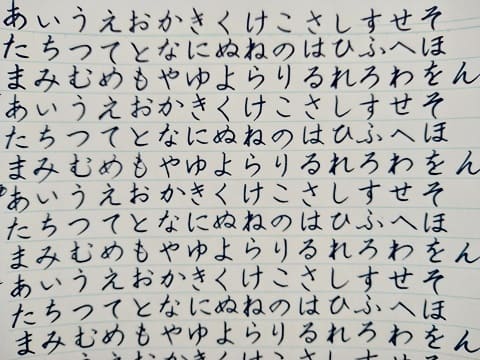 あいうえおかきくけこさしすせそ
たちつてとなにぬねのはひふへほ
まみむめもやゆよらりるれろわをん
あいうえおかきくけこさしすせそ
たちつてとなにぬねのはひふへほ
まみむめもやゆよらりるれろわをん
あいうえおかきくけこさしすせそ
たちつてとなにぬねのはひふへほ
まみむめもやゆよらりるれろわをん
あいうえおかきくけこさしすせそ
たちつてとなにぬねのはひふへほ
まみむめもやゆよらりるれろわをん